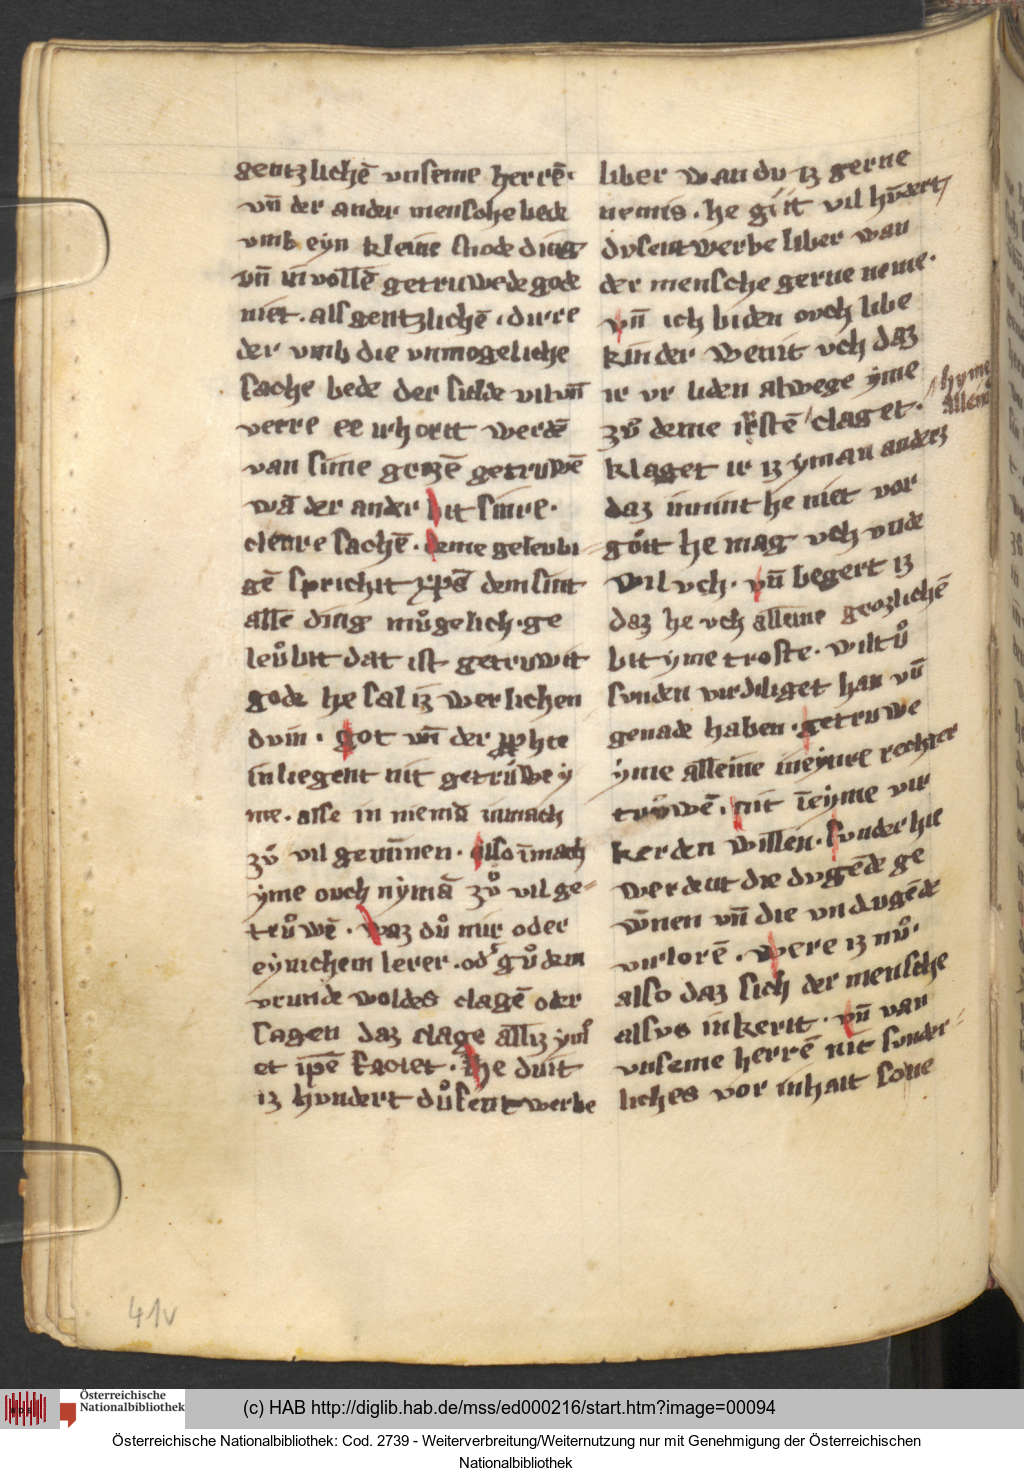 gentzlichē vnseme herrē·
vn̄ der ander mensche bede
vmb eyn kleine snode ding
vn̄ in vollē getruwede gode
niet· als gentzlichē· dirre
der vmb die vnmogeliche
sache bede der selde vil vn̄
verre ee irhorit werdē
van sime getruwē
wā der ander bit sinre·
cleinre sachē· deme geleubi
gē sprichit xp̄s dem sint
alle ding mu̐gelich· ge
leu̐bit dat ist getruwit
gode he sal iz werlichen
dvin· got vn̄ der pphte
in liegent nit getrúwe y
me· alse in niemā inmach
zu̐ vil geminnen· also īmach
yme ouch nymā zu̐ vil ge
tru̐wē· waz du̐ mir oder
eynichem lerer· od' gu̐dem
vrunde woldes clagē oder
sagen daz clage alliz yme
et ip̄e faciet· he duit
iz hvndert du̐sent werbe
liber wan du iz gerne
nemis· he giit vil hv̄dert
dvsent werbe liber wan
der mensche gerne neme·
vn̄ ich biden ouch libe
kinder wenit vch daz
ir vr liden alwege yme
zu̐ deme irstē claget· hyme allein
klaget ir iz yman anders
daz innint he niet vor
gu̐it he mag vch vnde
wil vch· vn̄ begert iz
daz he vch alleine genzlichē
bit yme troste· wiltu̐
svnden virdiliget han vn̄
genade haben· getruwe
yme alleine in eynre rechter
tru̐wē· mit īeyme vir
kerden willen· svnder hie
werdent die dvgēde ge
wnnen vn̄ die vndvgēde
virlorē· were iz nu̐·
also daz sich der mensche
alsvs inkerit· vn̄ van
vnseme herrē nit svnder
liches vor inhait sone
41v
Österreichische
Nationalbibliothek
(c) HAB http://diglib.hab.de/mss/ed000216/start.htm?image=00094
Österreichische Nationalbibliothek: Cod. 2739 - Weiterverbreitung/Weiternutzung nur mit Genehmigung der Österreichischen
Nationalbibliothek